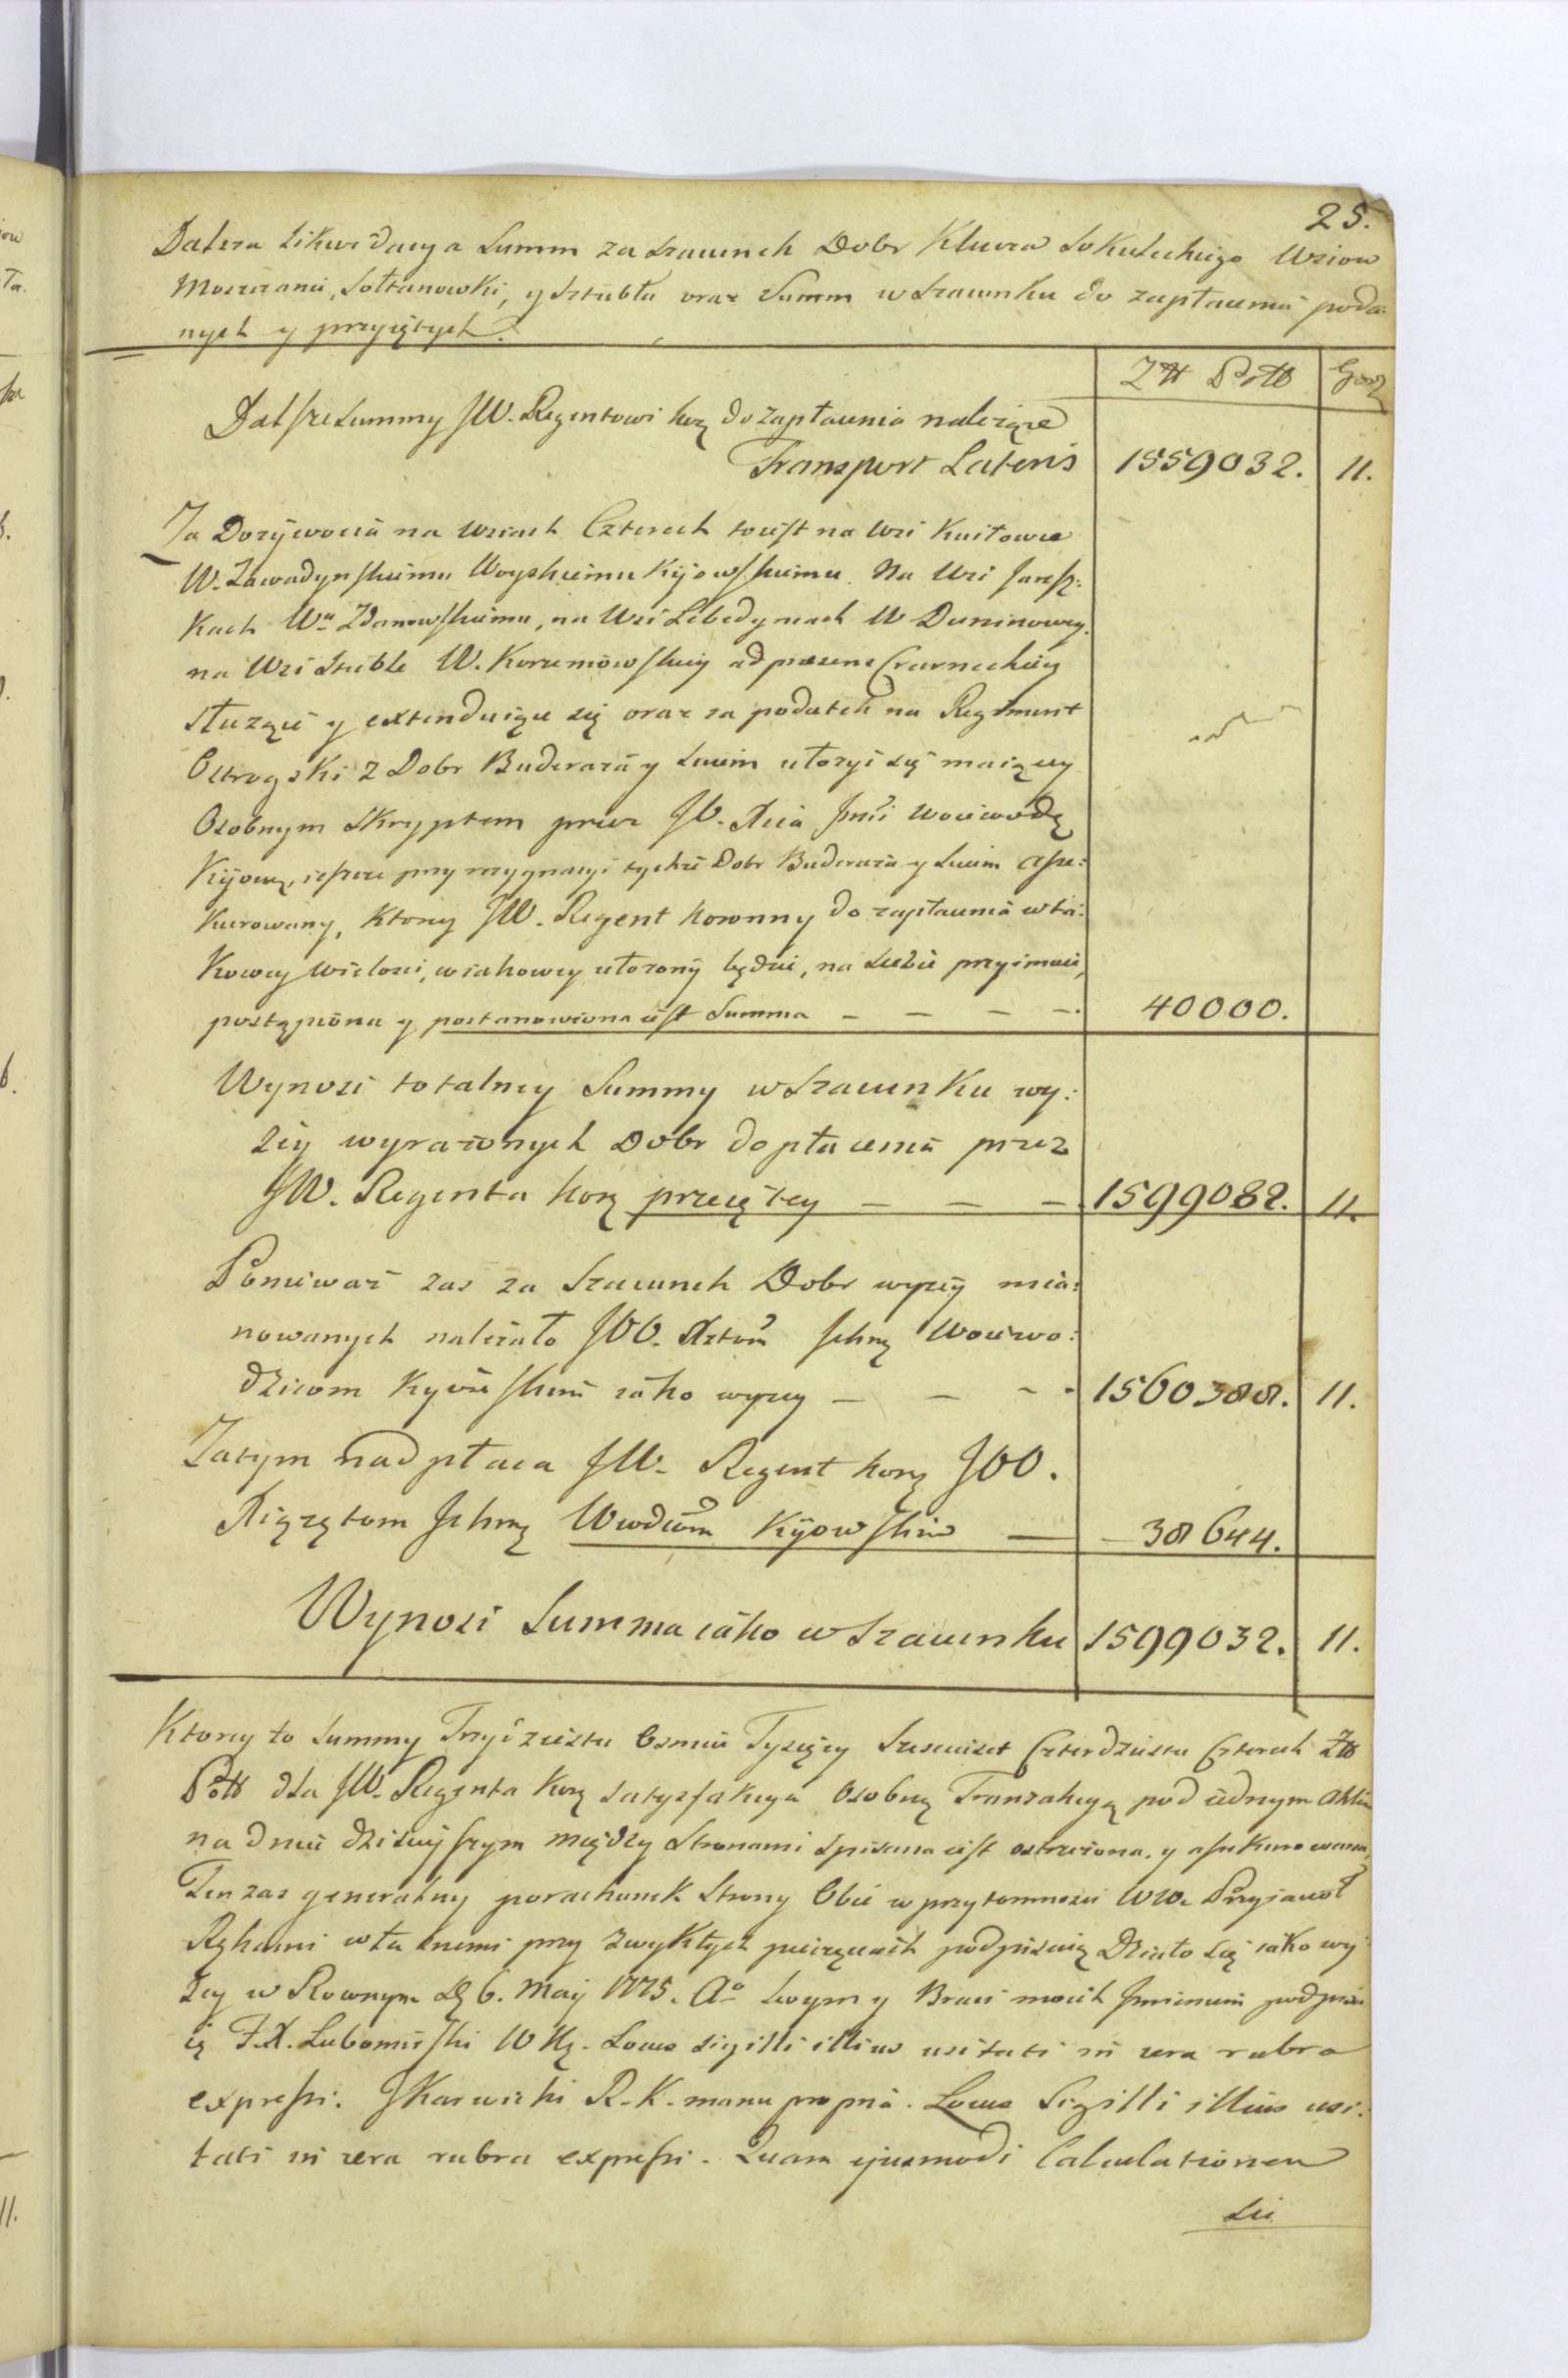 25.
Dalsza Likwidacya Summ za Szacunek Dobr Klucza Sokuleckiego Wsiow
Moszczani, Sołtanowki, y Sztubła oraz Summ w Szacunku do zapłacenia poda:
nych y przyiętych.
Złł Polł Gorz
Dalsze Summy JW. Regentowi korą do zapłacenia należące
Transport Lateris 1559032. 11.
Za Dozywocia na wsiach Czterech toiest na Wsi
W. Zawadynskiemu Woyskiemu Kijowskiemu Na Wsi
kach Wu Zdanowskiemu, na Wsi Lebedyncach W Duninowey.
na Wsi Stuble W. ad praesens Czarneckiey
służące y extenduiące się oraz za podatek na Regiment
Ostrogski z Dobr Buderaża y Suiem ułożyć się maiący
Osobnym Skryptem przez JO. Xcia Jmci Woiewodę
Kijowę, ieszcze przy rezygnacyi tychże Dobr Buderaża y Suiem asse:
kurowany, ktory JW. Regent koronny do zapłacenia w ta:
kowey wielosci, w iakowey ułożony będzie, na siebie przyimuie,
postąpiona y postanowiona iest Summa – – – –. 40000.
Wynosi totalney Summy w Szacunku wy:
żey wyrażonych Dobr do płacenia przez
JW. Regenta korą przeiętey – – – 1599082. 11.
Poniewaz zas za Szacunek Dobr wyzey mia:
nowanych należało JOO. Xztom Ichmę Woiewo:
dzicom Kyiowskim iako wyzey – – – - 1560388. 11.
Zatym nadpłaca JW. Regent korą JOO.
Xiążętom Ichmę Wwdicom Kijowskim — – 38644.
Wynosi Summa iako w Szacunku 1599032. 11.
Ktorey to Summy Trzydziestu Osmiu Tysięcy Szesciuset Czterdziestu Czterech Złł
Polł dla JW. Regenta korą satysfakcya Osobną Tranzakcyą pod iednym Aktem
na dniu dzisieyszym między Stronami spisana iest ostrzeżona y assekurowana,
Ten zas generalny porachunek Strony Obie w przytomnosci WW. Przyiacioł
Rękami własnemi przy zwykłych pieczęciach podpisuią Działo się iako wy
żey w Rownym D 6. Maij 1775. Ao swoym y Braci moich Jmieniem podpisu
ię F. X. Lubomirski W Kij. Locus sigilli illius usitati in cera rubra
expressi. JKarwicki R. K. manu propria. Locus Sigilli illius usi:
tati in cera rubra expressi. Quam ejusmodi Calculationem
Sic